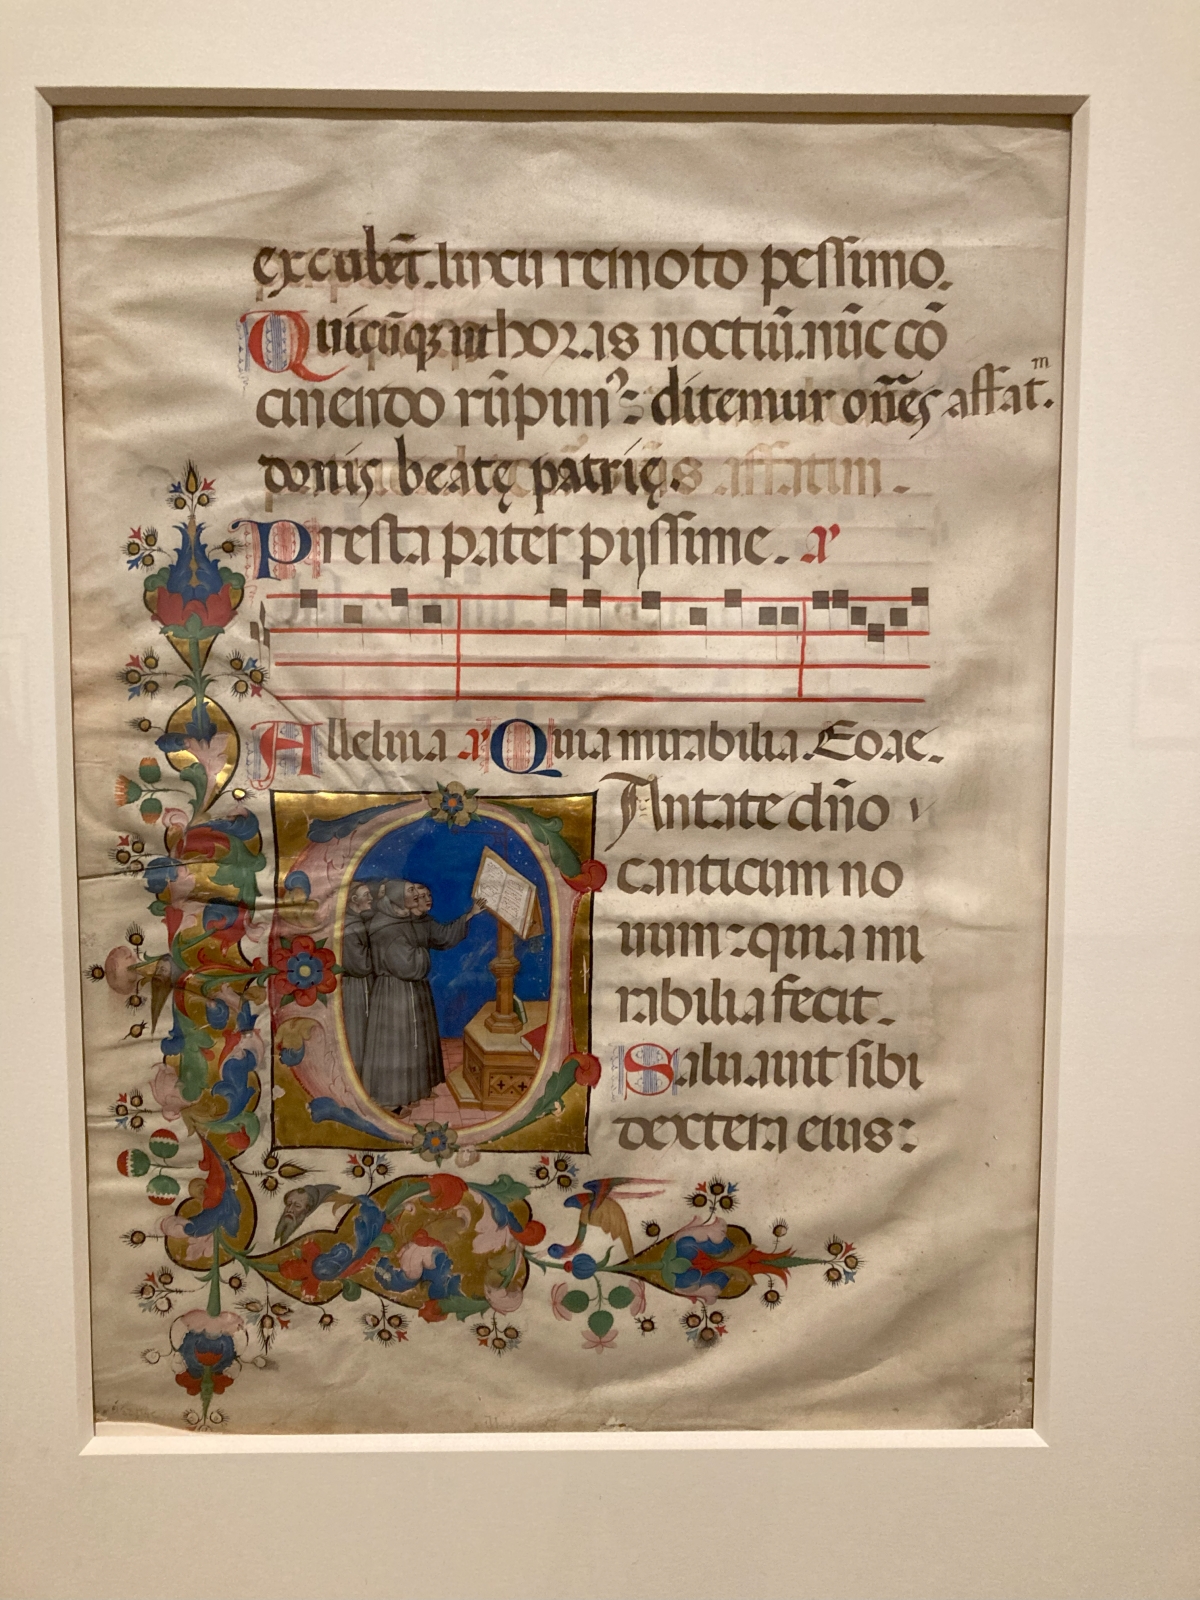 excubēt. lucu remoto pessimo.
Quicūqꝫ ut horas noctiū. nūc cō
cinendo rūpimꝰ: ditemur oīes affat.
m
donis beatę patrię. affatim.
Presta pater pijssime. a
Alleluia a Quia mirabilia. Eoae.
CAntate dño
canticum no
uum: quia mi
rabilia fecit.
Saluauit sibi
dextera eius: